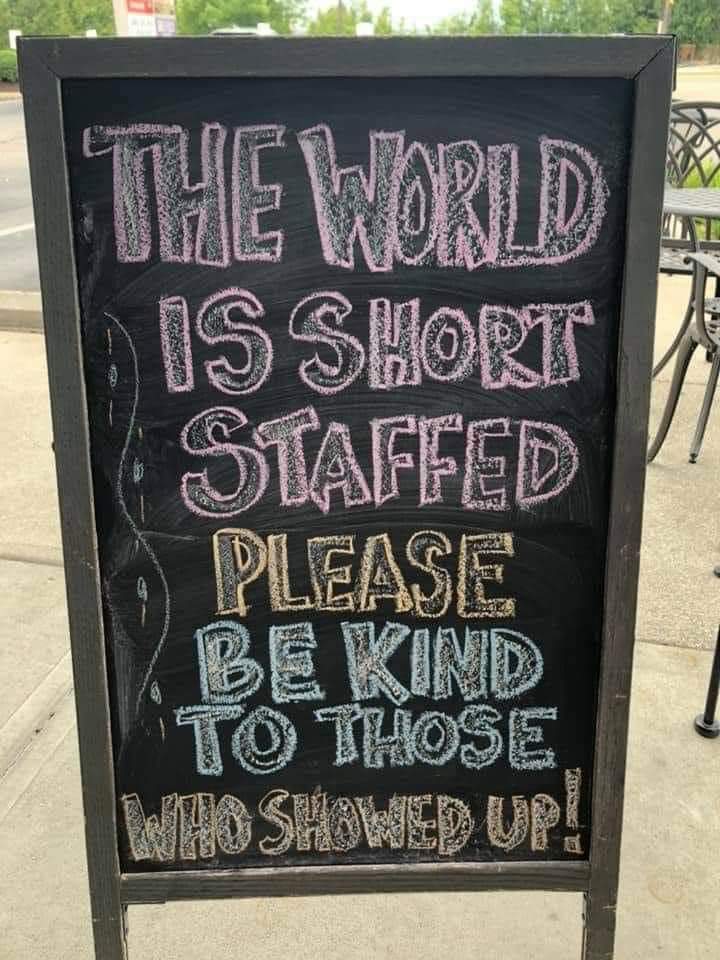 THE WORLD
IS SHORT
STAFFED
PLEASE
BE KIND
TO THOSE
WHO SHOWED UP!